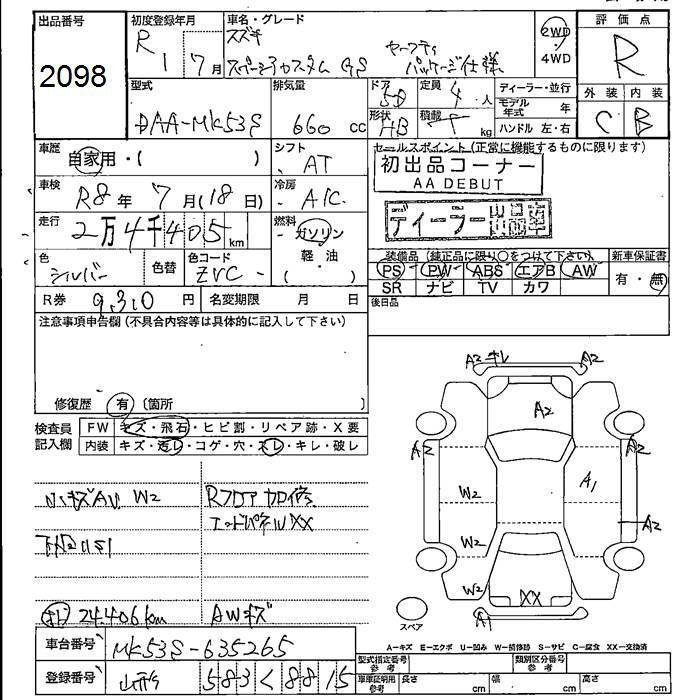 出品番号
2098
初度登録年月
R 1 7月
車名・グレード
スズキ
スペーシアカスタム GS
セーフティ
パッケージ仕様
2WD
4WD
評価点
R
外装 内装
C B
型式
DAA-MK53S
排気量
660 cc
ドア
5D
形状
HB
定員
4 人
積載
kg
ディーラー・並行
モデル年式 年
ハンドル 左・右
車歴
自家用・( )
シフト
AT
車検
R8年 7月(18日)
冷房
A/C
走行
2万4千405km
燃料
ガソリン
軽・油
( )
色
シルバー
色替
色コード
ZVC -
R券 9,310 円
名変期限 月 日
セールスポイント(正常に機能するものに限ります)
初出品コーナー
AA DEBUT
ディーラー出品車
装備品(純正品に限り○をつけて下さい)
PS PW ABS エアB AW
SR ナビ TV カワ
新車保証書
有・無
後日品
注意事項申告欄(不具合内容等は具体的に記入して下さい)
修復歴 有 〔箇所 〕
検査員
記入欄
FW キズ・飛石・ヒビ割・リペア跡・X要
内装 キズ・汚レ・コゲ・穴・スレ・キレ・破レ
小キズAU W2
Rフロア
エンドパネルXX
下廻りS1
24.406km
AWキズ
A2 キレ
A2
A2
A2
A2
A2
A1
W2
W2
W2
XX
A1
スペア
A-キズ E-エクボ U-凹み W-補修跡 S-サビ C-腐食 XX-交換済
車台番号
MK53S-635265
登録番号
山形 583 く 8815
型式指定番号
参考
類別区分番号
参考
車庫証明用
参考
長さ cm
幅 cm
高さ cm